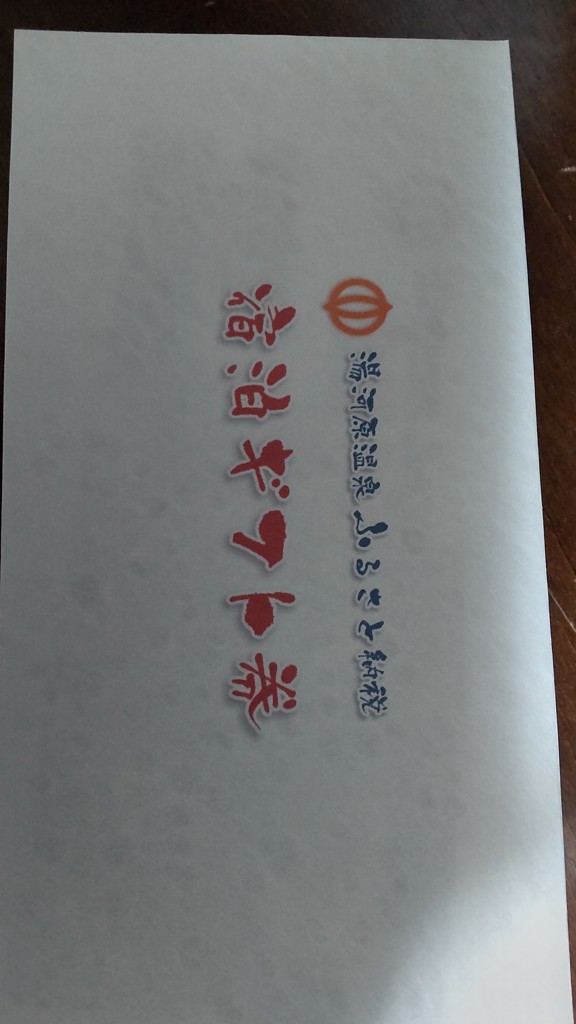 湯河原温泉ふるさと納税
宿泊ギフト券